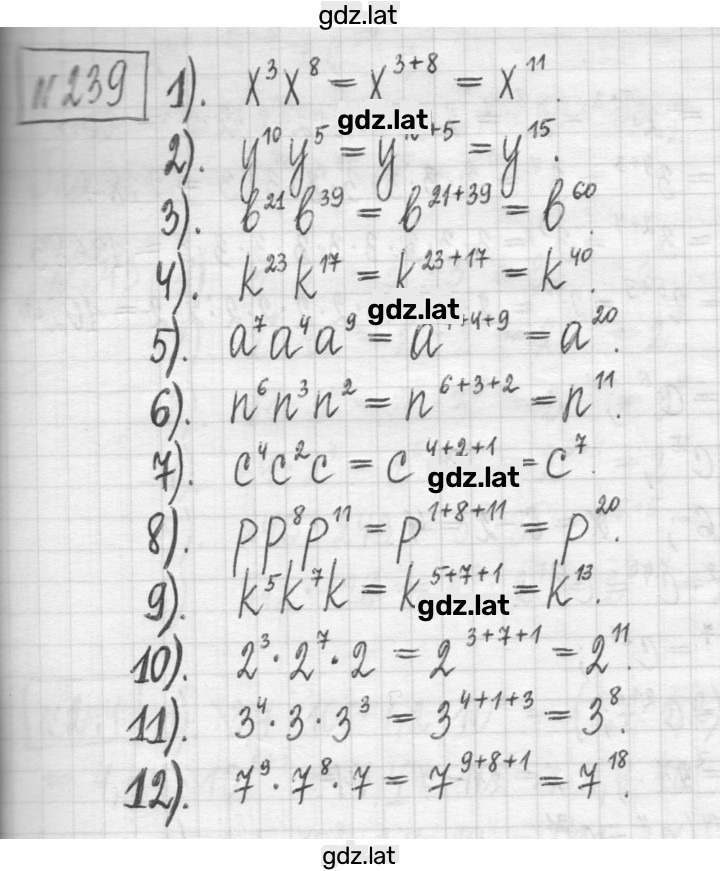 gdz.lat
№239 1). x³x⁸ = x³⁺⁸ = x¹¹.
gdz.lat
2). y¹⁰y⁵ = y¹⁰⁺⁵ = y¹⁵.
3). b²¹b³⁹ = b²¹⁺³⁹ = b⁶⁰.
4). k²³k¹⁷ = k²³⁺¹⁷ = k⁴⁰.
gdz.lat
5). a⁷a⁴a⁹ = a⁷⁺⁴⁺⁹ = a²⁰.
6). n⁶n³n² = n⁶⁺³⁺² = n¹¹.
7). c⁴c²c = c⁴⁺²⁺¹ = c⁷.
gdz.lat
8). pp⁸p¹¹ = p¹⁺⁸⁺¹¹ = p²⁰.
9). k⁵k⁷k = k⁵⁺⁷⁺¹ = k¹³.
gdz.lat
10). 2³·2⁷·2 = 2³⁺⁷⁺¹ = 2¹¹.
11). 3⁴·3·3³ = 3⁴⁺¹⁺³ = 3⁸.
12). 7⁹·7⁸·7 = 7⁹⁺⁸⁺¹ = 7¹⁸.
gdz.lat